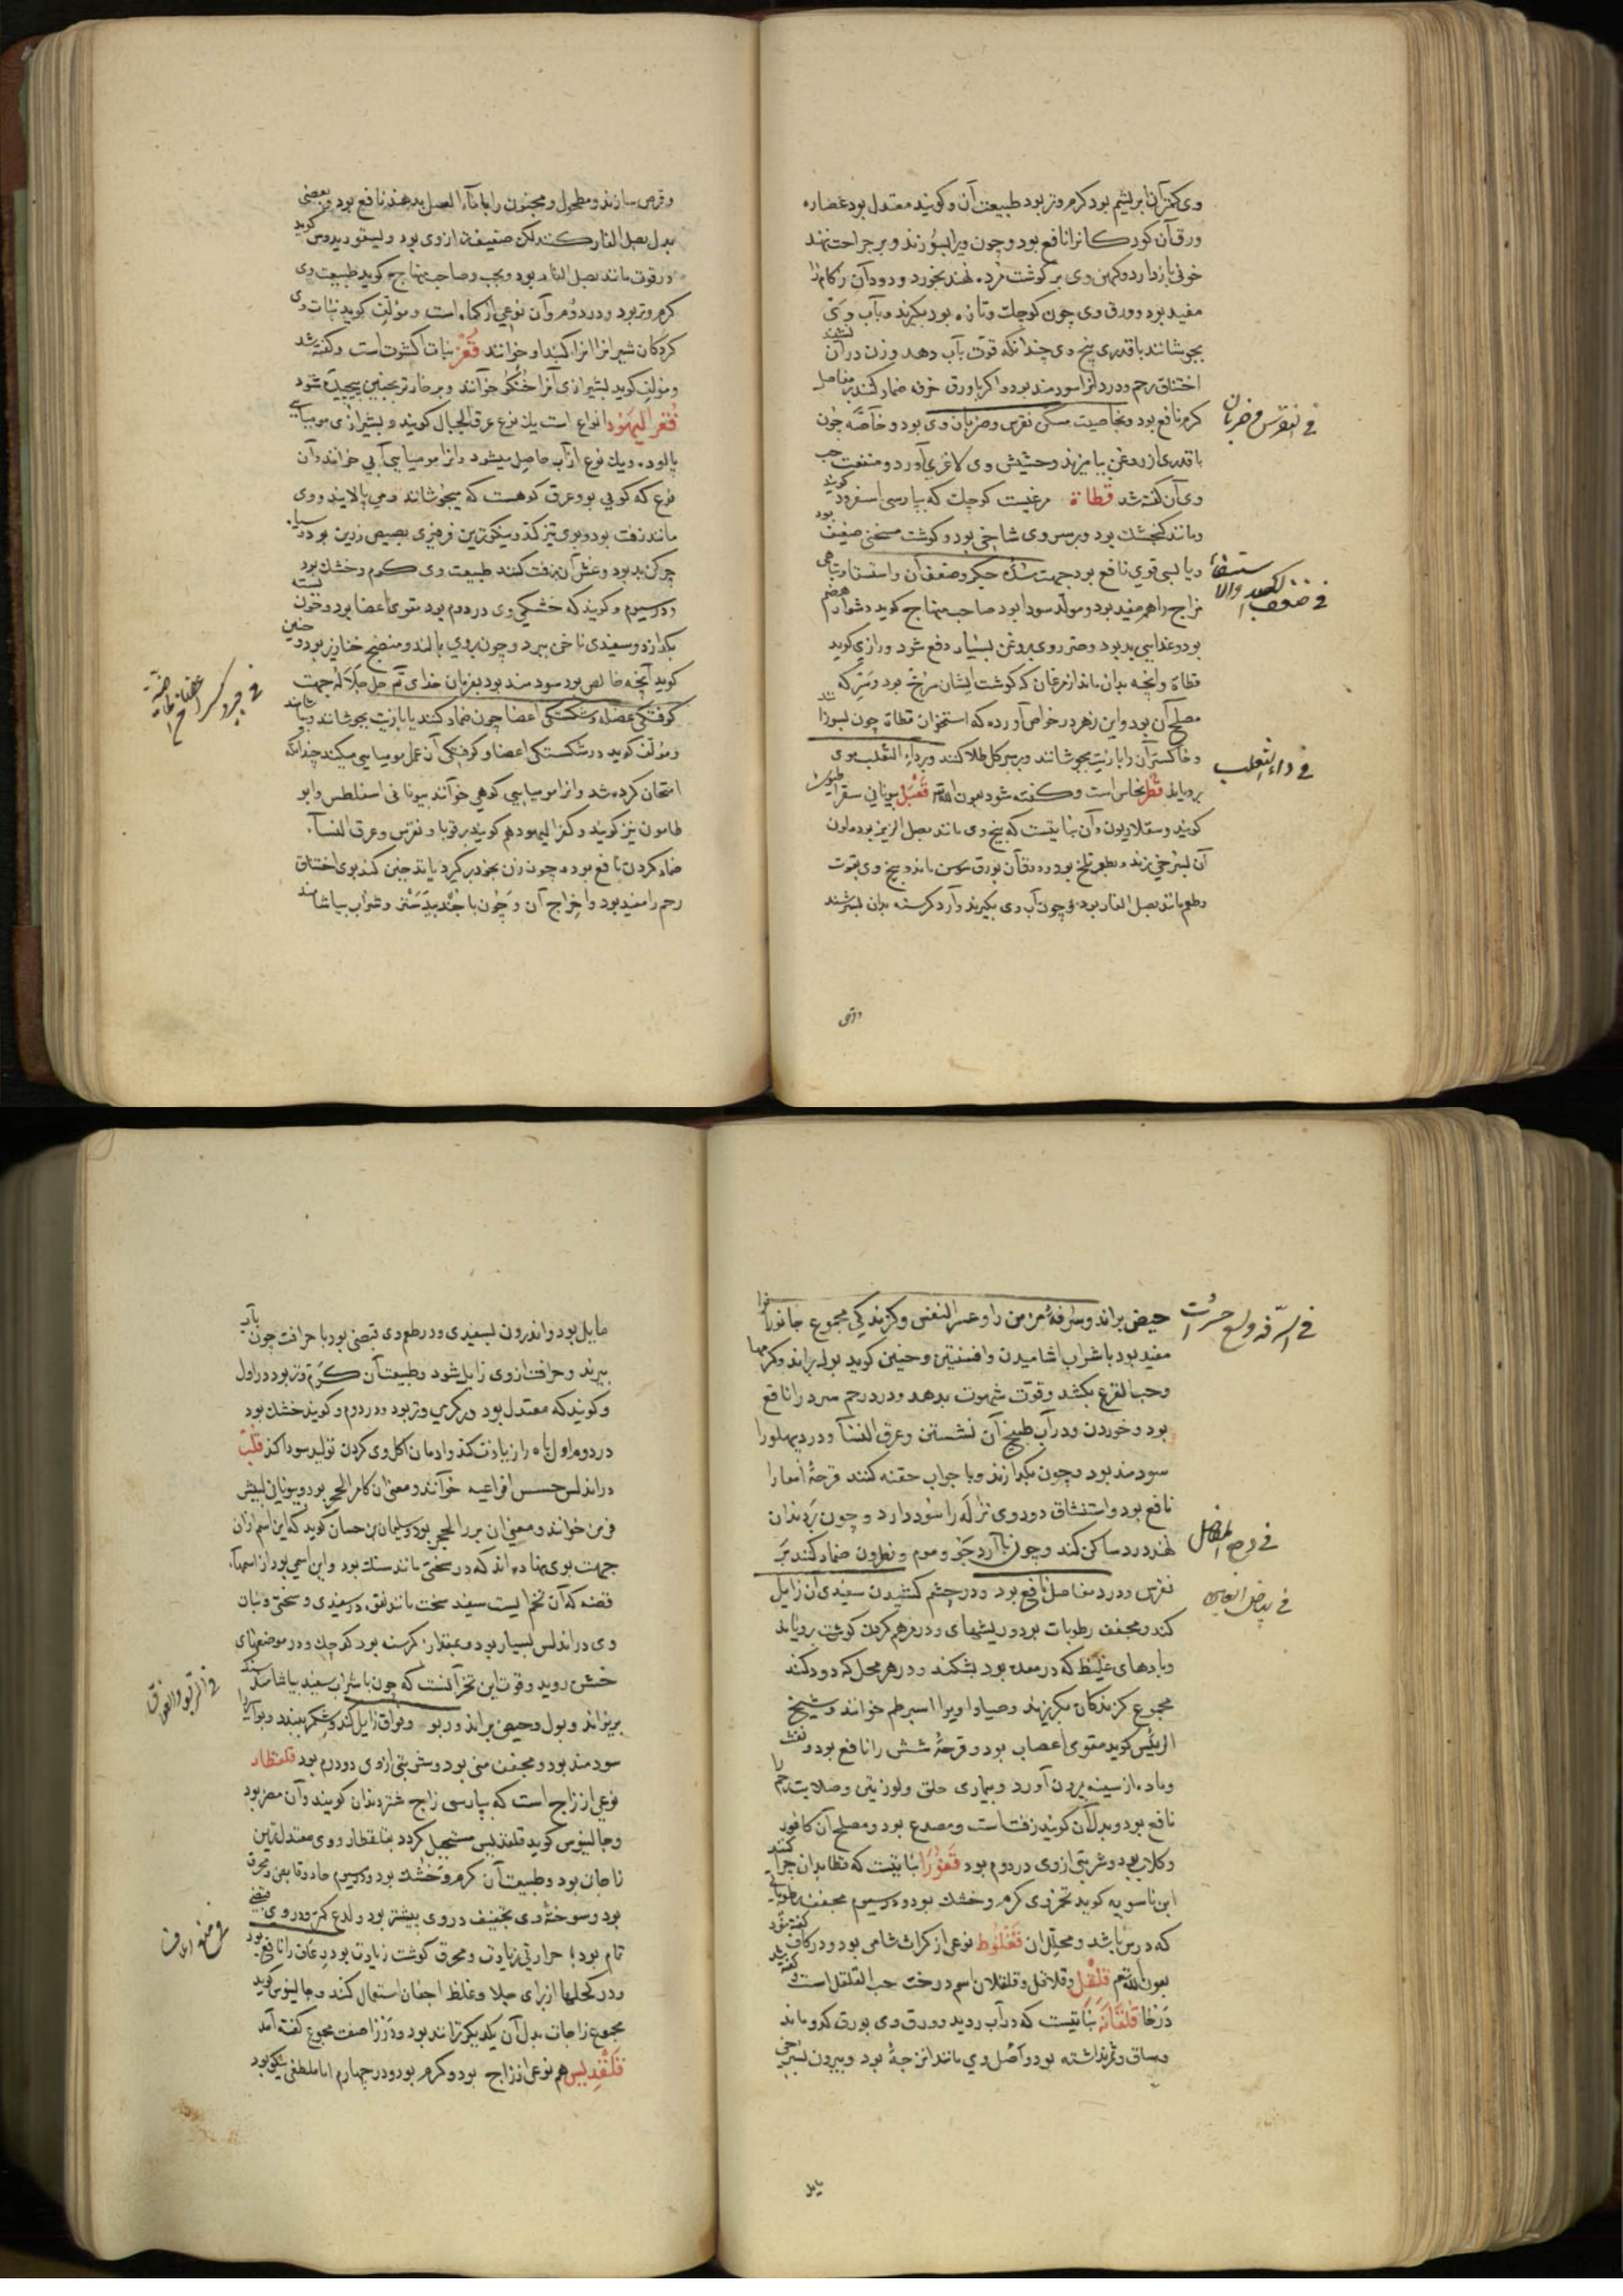 وی کمتر از ابریشم بود کرم و تر بود طبیعت آن و کویند معتدل بود عصاره
ورق آن کودکانرا نافع بود و چون ویرا بسوزند و بر جراحت نهند
خونی بازدارد و کهن وی بر کوشت مرده نهند بخورد و دود آن زکام را
مفید بود و ورق وی چون کوچک و تازه بود بکیرند و بآب و می
بجوشانند با قدری بیخ وی چندانکه قوت بآب دهد و زن در آن نشیند
اختناق رحم و درد آنرا سودمند بود و اکر با ورق خرفه ضماد کنند بر مفاصل
کرم نافع بود و بخاصیت مسکن نقرس و ضربان وی بود و خاصه چون
با قدری از روغن بیامیزند و حشیش وی لاغری آورد و منفعت حب
وی آن کفته شد قطاة مرغیست کوچک که بپارسی اسفرود کویند
و مانند کنجشک بود و بر سر وی شاخی بود و کوشت مسخن ضعیف بود
و یابسی قوی نافع بود جهت سده جکر و ضعف آن و استسقا و تباهی
مزاج را هم مفید بود و مولد سودا بود صاحب منهاج کوید دشوار هضم
بود و غذایی بد بود و ضرر وی بروغن بسیار دفع شود و رازی کوید
قطاة و آنچه بدان ماند از مرغان که کوشت ایشان سرخ بود و سرکه
مصلح آن بود و ابن زهر در خواص آورده که استخوان قطاة چون بسوزانند
و خاکستر آن را با زیت بجوشانند و بر سر کل طلا کنند و بر داء الثعلب موی
برویاند قطر نحاس است و کفته شود بعون الله قعبل بیونانی سقرا
کویند و سقلاریون و آن نباتیست که بیخ وی مانند بصل الزیز بود و لون
آن بسرخی زند و بطعم تلخ بود و ورق آن بورق سوسن ماند و بیخ وی بقوت
و طعم مانند بصل الفار بود و چون آب وی بکیرند و آرد کرسنه بدان بسرشند
فی النقرس و ضربان
فی ضعف الکبد والاستسقاء
فی داء الثعلب
و قرص سازند و مطحول و مجنون را با ماء العسل بدهند نافع بود و بعضی
بدل بصل الفار کنند لکن ضعیف‌تر از وی بود و دیسقوریدوس کوید
در قوت مانند بصل الفار بود و صاحب منهاج کوید طبیعت وی
کرم و تر بود در دوم و آن نوعی از کماه است و مولف کوید نبات وی
کردکان شیراز آنرا کبد او خوانند قعز نبات اکشوت است و کفته شد
و مولف کوید بشیرازی آنرا خنکو خوانند و بر خار ترنجبین پیچیده شود
قفر الیهود انواع است یک نوع عرق الجبال کویند و بشیرازی مومیایی
پالوده و یک نوع از آب حاصل میشود و آنرا مومیایی آبی خوانند و آن
نوع که کوهی بود عرق کوهست که بیجوشانند و می پالایند و وی
مانند زفت بود و بوی تیز کند و نیکوترین فرفیری بصیص زرین بود و سیاه
چرکن بد بود و غش آن بزفت کنند طبیعت وی کرم و خشک بود
در سیوم و کویند که خشکی وی در دوم بود مقوی اعضا بود و خون بسته
بکدازد و سفیدی ناخن ببرد و چون بر وی بالند و منضج خنازیر بود و حنین
کوید آنچه خالص بود سودمند بود بفرمان خدای تع جل جلاله جهت
کوفتکی عضله و شکستکی اعضا چون ضماد کنند یا با زیت بجوشانند و بیاشامند
و مولف کوید در شکستکی اعضا و کوفتکی آن عمل مومیایی میکند چنانکه
امتحان کرده شد و آنرا مومیایی کوهی خوانند بیونانی اسفلطس و ابو
طامون نیز کویند و کفر الیهود هم کویند بر قوبا و نقرس و عرق النسا
ضماد کردن نافع بود و چون زن بخود برکیرد یا تدخین کند بوی اختناق
رحم را مفید بود و اخراج آن و چون با جندبیدستر و شراب بیاشامند
حیض براند و سرفه مزمن را و عسر النفس و کزندکی مجموع جانوران
مفید بود با شراب آشامیدن و افسنتین و حنین کوید بول براند و کرمها
و حب القرع بکشد و قوت شهوت بدهد و درد رحم سرد را نافع
بود و خوردن و در آب طبیخ آن نشستن و عرق النسا و درد پهلو را
سودمند بود و چون بکدازند و با جواب حقنه کنند قرحه امعا را
نافع بود و استنشاق دود وی نزله را سود دارد و چون بر دندان
نهند درد ساکن کند و چون با آرد جو و موم و نطرون ضماد کنند بر
نقرس و درد مفاصل نافع بود و در چشم کشیدن سفیدی آن زایل
کند و مجفف رطوبات بود و ریشهای و در مرهم کردن کوشت برویاند
و بادهای غلیظ که در معده بود بشکند و در هر محل که دود کنند
مجموع کزندکان بکریزند و صیادان ویرا اسبرطم خوانند و شیخ
الرئیس کوید مقوی اعصاب بود و قرحه شش را نافع بود و نفث
و ماده از سینه بیرون آورد و بیماری حلق و لوزتین و صلابت رحم را
نافع بود و بدل آن کویند زفت است و مصدع بود و مصلح آن کافور
و کلاب بود و شربتی از وی دو درم بود قعورا نباتیست که قطا بدان چرا کنند
ابن ماسویه کوید تخم وی کرم و خشک بود در سیوم مجفف رطوباتی
که در سر باشد و محلل آن قفلوط نوعی از کراث شامی بود و در کاف کفته شود
بعون الله تع قلقل و قلاقل و قلقلان اسم درخت حب القلقل است و کفته شد
در حا قلقانه نباتیست که در آب روید و ورق وی بورق کدو ماند
و ساق و ثمر نداشته بود و اصل وی مانند اترجه بود و بیرون بسرخی
فی السرفه و لسع حشرات
فی وجع المفاصل
فی بیاض العین
مایل
مایل بود و اندرون بسفیدی و در طعم وی قبضی بود با حرافت چون بآب
بپزند و حرافت از وی زایل شود و طبیعت آن کرم و تر بود در اول
و کویند که معتدل بود در کرمی و تر بود در دوم و کویند خشک بود
در دوم اول باه را زیادت کند و ادمان اکل وی کردن تولید سودا کند قلب
در اندلس افراعیه خوانند و معنی آن کاسر الحجر بود و بیونانی لیثس
فرمن خوانند و معنی آن بزر الحجر بود و سلیمان بن حسان کوید که این اسم از آن
جهت بوی نهاده‌اند که در سختی مانند سنک بود و این اسمی بود از اسماء
فضه که آن تخمی ایست سفید سخت مانند نقره در سفیدی و سختی و نبات
وی در اندلس بسیار بود و بمقدار کرسنه بود کوچک و در موضعهای
خشن روید و قوت این تخم آنست که چون با شراب سفید بیاشامند سنک
بریزاند و بول و حیض براند و ربو و فواق زایل کند و شکم ببندد و بواسیر را
سودمند بود و مجفف منی بود و شربتی از وی دو درم بود قلقطار
نوعی از زاج است که بپارسی زاج شتردندان کویند و آن مصر بود
و جالینوس کوید قلقدیس مستحیل کردد بقلقطار و وی معتدلترین
زاجات بود و طبیعت آن کرم و خشک بود در سیوم حاد و قابض و محرق
بود و سوخته وی تجفیف در وی بیشتر بود و لدع کمتر و در وی قبضی
تمام بود با حرارتی زیادت و محرق کوشت زیادت بود رعاف را نافع بود
و در کحلها از برای جلا و غلظ اجفان استعمال کنند و جالینوس کوید
مجموع زاجات بدل آن یکدیکر توانند بود و در زا صفت مجموع کفته آمد
قلقدیس هم نوعی از زاج بود و کرم بود در چهارم اما ملطفی نیکو بود